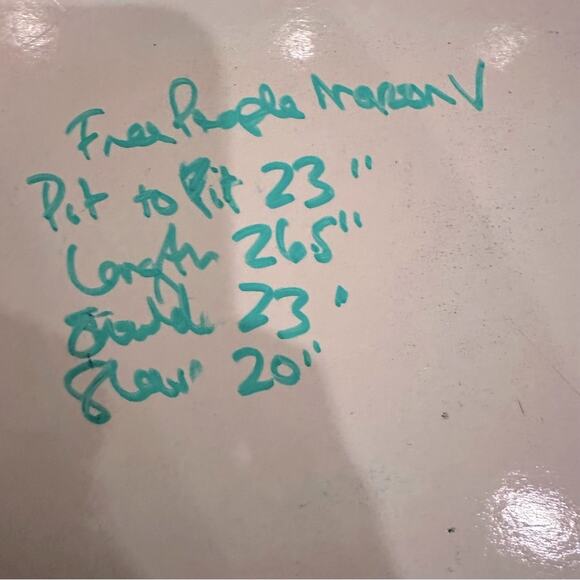 Free People Maroon V
Pit to Pit 23"
Length 26.5"
23"
20"